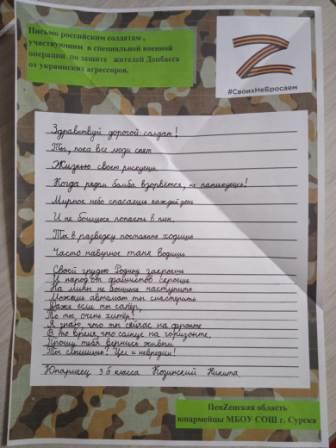 Письмо российским солдатам,
участвующим в специальной военной
операции по защите жителей Донбасса
от украинских агрессоров.
Z
#СвоихНеБросаем
Здравствуй дорогой солдат!
Ты, пока все люди спят
Жизнью своею рискуешь
Когда рядом бомба взорвется, не паникуешь!
Мирное небо спасаешь каждый день
И не боишься попасть в плен.
Ты в разведку постоянно ходишь
Часто наверное танк водишь
Своей грудью Родину закроешь
И народ от фашистов
На мины не боишься наступить
Можешь автомат ты смастерить
Даже если ты сапёр,
То ты, очень хитёр!
Я знаю, что ты сейчас на фронте
В то время, что солнце на горизонте,
Прошу тебя вернись живым,
Ты слышишь! Цел и невредим!
Юнармеец 3 б класса Козинский Никита
ПенZенская область
юнармейцы МБОУ СОШ г. Сурска